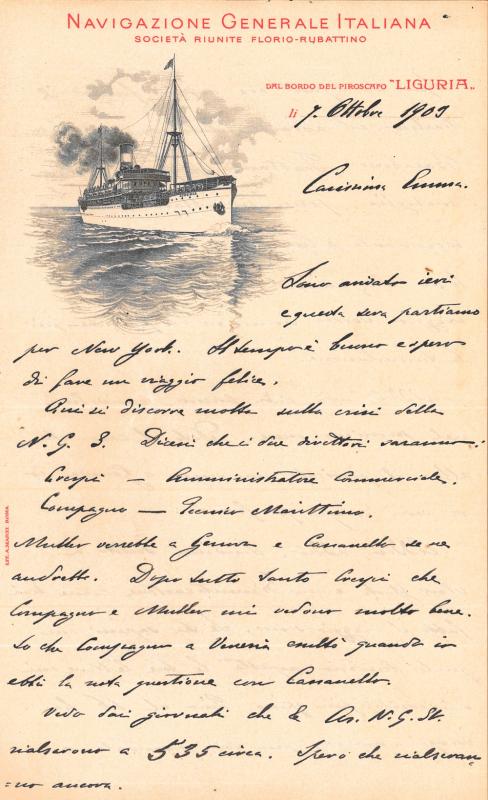 NAVIGAZIONE GENERALE ITALIANA
SOCIETÀ RIUNITE FLORIO-RUBATTINO
DAL BORDO DEL PIROSCAFO "LIGURIA„
li 7. Ottobre 1909
Carissima Emma.
Sono andato ieri
e questa sera partiamo
per New York. Il tempo è buono e spero
di fare un viaggio felice.
Qui si discorre molto sulla crisi della
N. G. I. Dicesi che i due direttori saranno:
Crespi — Amministratore Commerciale.
Compagno — Tecnico Marittimo.
Muller verrebbe a Genova e Cassanello se ne
andrebbe. Dopo tutto tanto Crespi che
Compagno e Muller mi vedono molto bene.
So che Compagno a Venezia esultò quando io
ebbi la nota questione con Cassanello.
Vedo dai giornali che le As. N. G. It.
rialserono a 535 circa. Spero che rialseran
=no ancora.
LIT. A. MARZI ROMA